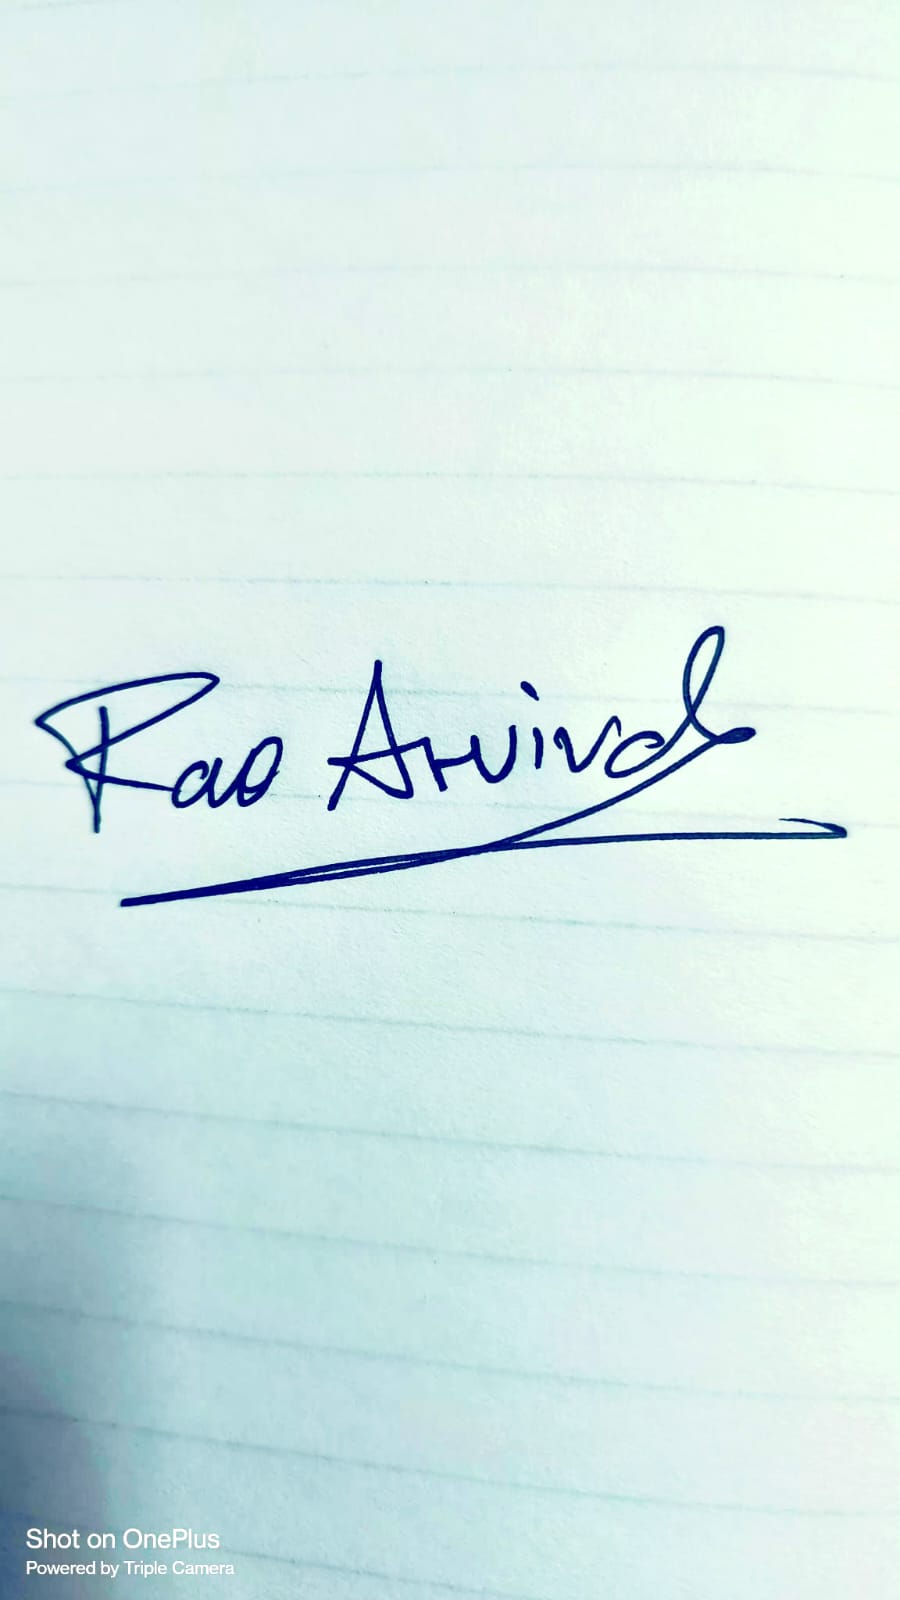 Rao Arvind
Shot on OnePlus
Powered by Triple Camera